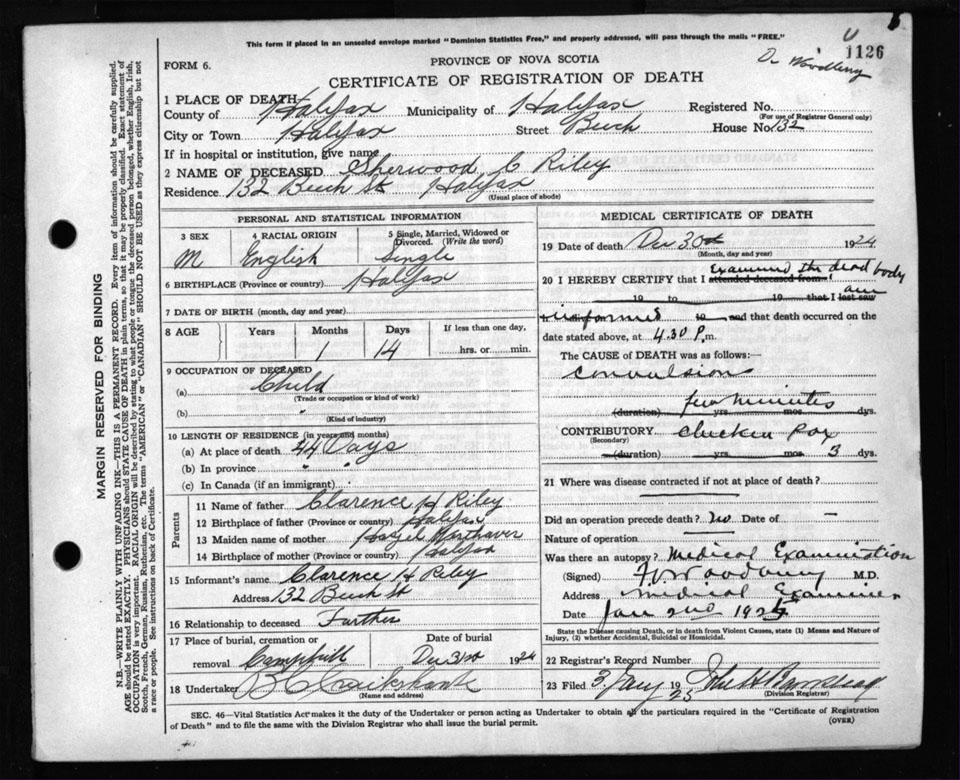 This form if placed in an unsealed envelope marked "Dominion Statistics Free," and properly addressed, will pass through the mails "FREE."
1126
FORM 6.
PROVINCE OF NOVA SCOTIA
CERTIFICATE OF REGISTRATION OF DEATH
1 PLACE OF DEATH
County of Halifax Municipality of Halifax Registered No.
(For use of Registrar General only)
City or Town Halifax Street Beech House No. 132
If in hospital or institution, give name
2 NAME OF DECEASED Sherwood C Riley
Residence 132 Beech St Halifax
(Usual place of abode)
PERSONAL AND STATISTICAL INFORMATION
3 SEX 4 RACIAL ORIGIN 5 Single, Married, Widowed or Divorced. (Write the word)
M English Single
6 BIRTHPLACE (Province or country) Halifax
7 DATE OF BIRTH (month, day and year)
8 AGE Years Months Days If less than one day,
1 14 hrs. or min.
9 OCCUPATION OF DECEASED
(a) Child
(Trade or occupation or kind of work)
(b) "
(Kind of industry)
10 LENGTH OF RESIDENCE (in years and months)
(a) At place of death 44 Days
(b) In province " "
(c) In Canada (if an immigrant)
Parents
11 Name of father Clarence H Riley
12 Birthplace of father (Province or country) Halifax
13 Maiden name of mother
14 Birthplace of mother (Province or country) Halifax
15 Informant's name Clarence H Riley
Address 132 Beech St
16 Relationship to deceased Farther
17 Place of burial, cremation or removal Date of burial
Camphill Dec 31st 1924
18 Undertaker Cruikshank
(Name and address)
MEDICAL CERTIFICATE OF DEATH
19 Date of death Dec 30th 1924
(Month, day and year)
Examined the dead body
20 I HEREBY CERTIFY that I attended deceased from
am
19 to 19 that I last saw
informed 19 and that death occurred on
date stated above, at 4.30 P.m.
The CAUSE of DEATH was as follows:—
Convulsions
few minutes
(duration) yrs. mos. dys.
CONTRIBUTORY Chicken Pox
(Secondary)
(duration) yrs. mos. 3 dys.
21 Where was disease contracted if not at place of death?
Did an operation precede death? no Date of —
Nature of operation
Was there an autopsy? Medical Examination
(Signed) M.D.
Address Medical Examiner
Date Jan 2nd 1925
State the Disease causing Death, or in death from Violent Causes, state (1) Means and Nature of
Injury, (2) whether Accidental, Suicidal or Homicidal.
22 Registrar's Record Number
23 Filed 3 Jany 1925
(Division Registrar)
SEC. 46—Vital Statistics Act makes it the duty of the Undertaker or person acting as Undertaker to obtain all the particulars required in the "Certificate of Registration
of Death" and to file the same with the Division Registrar who shall issue the burial permit.
(OVER)
MARGIN RESERVED FOR BINDING
N.B.—WRITE PLAINLY WITH UNFADING INK—THIS IS A PERMANENT RECORD. Every item of information should be carefully supplied.
AGE should be stated EXACTLY. PHYSICIANS should STATE CAUSE OF DEATH in plain terms, so that it may be properly classified. Exact statement of
OCCUPATION is very important. RACIAL ORIGIN will be described by stating to what people or tongue the deceased person belonged, whether English, Irish,
Scotch, French, German, Russian, Ruthenian, etc. The terms "AMERICAN" or "CANADIAN" SHOULD NOT BE USED as they express citizenship but not
a race or people. See instructions on back of Certificate.